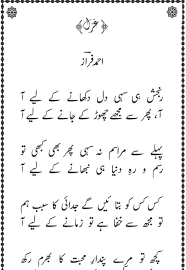 غزل
احمد فراز
رنجش ہی سہی دل دکھانے کے لیے آ
آ، پھر سے مجھے چھوڑ کے جانے کے لیے آ
پہلے سے مراسم نہ سہی پھر بھی کبھی تو
رسم و رہِ دنیا ہی نبھانے کے لیے آ
کس کس کو بتائیں گے جدائی کا سبب ہم
تو مجھ سے خفا ہے تو زمانے کے لیے آ
کچھ تو مرے پندارِ محبت کا بھرم رکھ